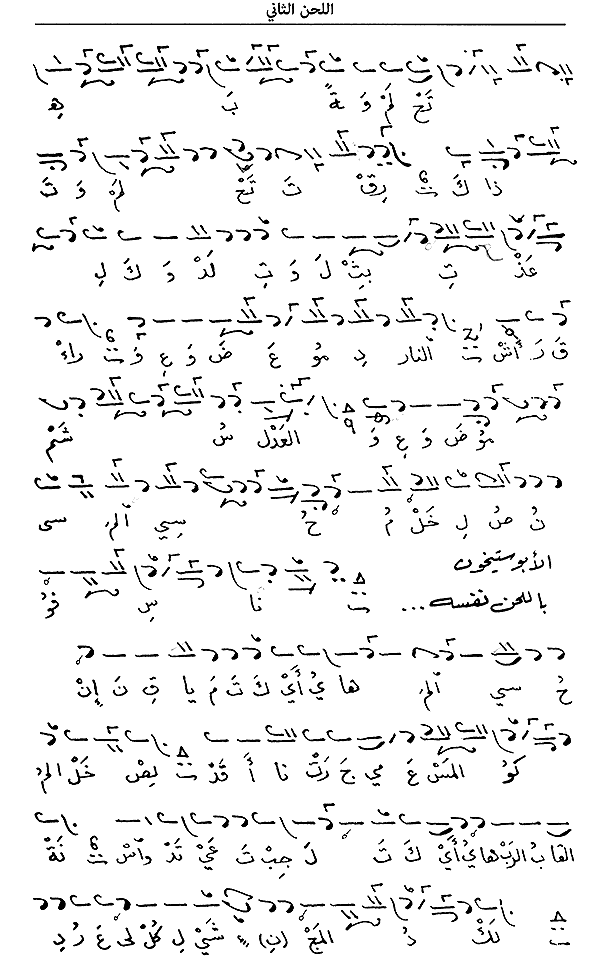 اللحن الثاني
تَحْ لَمْ وَ ةً بَ هِـ
ذا كَ رِقْ تَ تَحْ لَمْ وَ تَ
عَذْ تِ بِتْ لَ وَ تِ لَدْ وَ كَ لِ
قَ رَ أَشْ النار دِ مُو عَ ضَ وَ عِ وَ راكْ
مَوْ ضَ وَ عِ وَ العَدْل سُ شَمْ
نُ صُ لِ خَلْ مُ حُ سِي الم سى
الأبوستيخون
باللحن نفسه... نا سِ فو
حُ سي الم ها يُ أَيْ كَ تَ مَ يا قِ نَ إِنْ
كو المَسْ عَ مي جَ رَتْ نا أَ قَدْ لِصْ خَلْ الم
القابُ الرَبْ هايُ أَيْ كَ تَ لَ جِبْ تَ عَيْ تَدْ واسْ نَةْ
لَكْ دُ المَجْ (نِ) شَيْ لِ كُلْ لى عَ رُ دِ